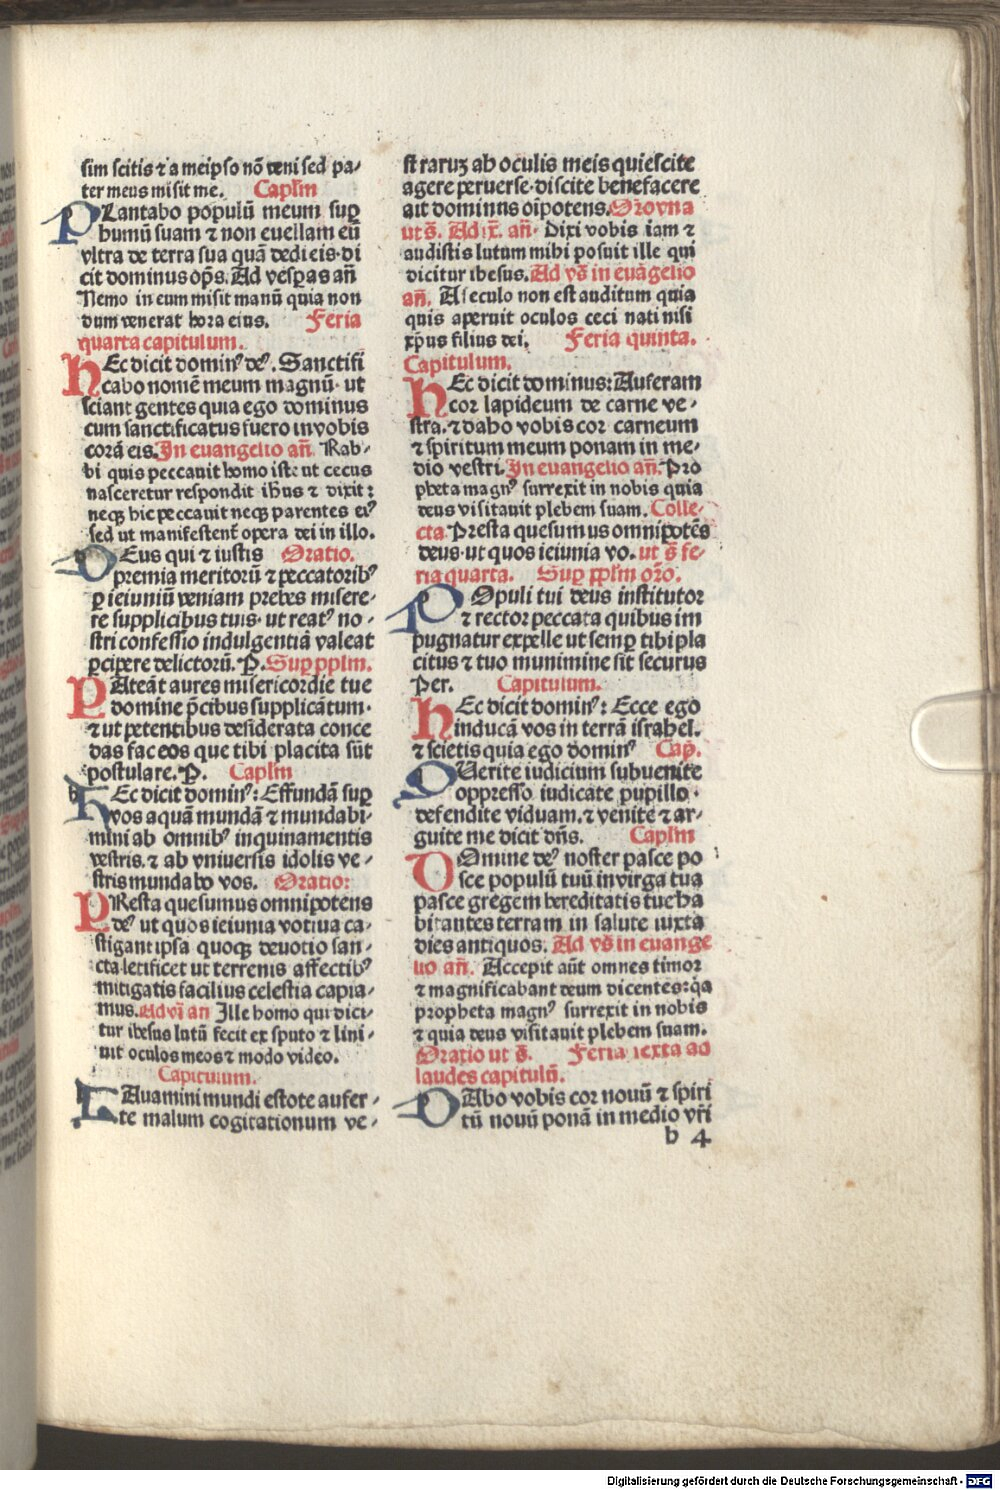 sim scitis ⁊ a meipso nō veni sed pa-
ter meus misit me. Caplm̄
PLantabo populū meum sup̄
humū suam ⁊ non euellam eū
vltra de terra sua quā dedi eis· di
cit dominus op̄s. Ad vesp̄as an̄
Nemo in eum misit manū quia non
dum venerat hora eius. Feria
quarta capitulum.
HEc dicit dominꝰ deꝰ. Sanctifi
cabo nomē meum magnū· ut
sciant gentes quia ego dominus
cum sanctificatus fuero in vobis
corā eis. In euangelio an̄. Rab-
bi quis peccauit homo iste ut cecus
nasceretur respondit ih̄us ⁊ dixit:
neqꝫ hic peccauit neqꝫ parentes eiꝰ
sed ut manifestent̄ opera dei in illo.
DEus qui ⁊ iustis Oratio.
premia meritorū ⁊ peccatoribꝰ
ꝑ ieiuniū veniam prebes misere-
re supplicibus tuis· ut reatꝰ no-
stri confessio indulgentiā valeat
ꝑcipere delictorū. P. Sup̄ pplm̄.
PAteāt aures misericordie tue
domine p̄cibus supplicātum·
⁊ ut petentibus desiderata conce
das fac eos que tibi placita sūt
postulare. P. Caplm̄
HEc dicit dominꝰ: Effundā sup̄
vos aquā mundā ⁊ mundabi-
mini ab omnibꝰ inquinamentis
vestris. ⁊ ab vniuersis idolis ve-
stris mundabo vos. Oratio:
PResta quesumus omnipotens
deꝰ ut quos ieiunia votiua ca-
stigant ipsa quoqꝫ deuotio san-
cta letificet ut terrenis affectibꝰ
mitigatis facilius celestia capia-
mus. Ad vi an Ille homo qui dici-
tur ihesus lutū fecit ex sputo ⁊ lini-
uit oculos meos ⁊ modo video.
Capitulum.
LAuamini mundi estote aufer-
te malum cogitationum ve-
straruꝫ ab oculis meis quiescite
agere peruerse· discite benefacere
ait dominus oīpotens. Orō vna
ut s̄. Ad ix̄. an̄· Dixi vobis iam ⁊
audistis lutum mihi posuit ille qui
dicitur ihesus. Ad vs̄ in euāgelio
an̄. A seculo non est auditum quia
quis aperuit oculos ceci nati nisi
xp̄us filius dei. Feria quinta.
Capitulum.
HEc dicit dominus: Auferam
cor lapideum de carne ve-
stra. ⁊ dabo vobis cor carneum
⁊ spiritum meum ponam in me-
dio vestri. In euangelio an̄. Pro
pheta magnꝰ surrexit in nobis quia
deus visitauit plebem suam. Colle-
cta. Presta quesumus omnipotēs
deus· ut quos ieiunia vo. ut s̄ fe-
ria quarta. Sup̄ pplm̄ orō.
POpuli tui deus institutor
⁊ rector peccata quibus im
pugnatur expelle ut semp̄ tibi pla
citus ⁊ tuo munimine sit securus
Per. Capitulum.
HEc dicit dominꝰ: Ecce ego
inducā vos in terrā israhel.
⁊ scietis quia ego dominꝰ Cap̄.
QUerite iudicium subuenite
oppresso iudicate pupillo·
defendite viduam. ⁊ venite ⁊ ar-
guite me dicit dn̄s. Caplm̄
DOmine deꝰ noster pasce po
sce populū tuū in virga tua
pasce gregem hereditatis tue ha
bitantes terram in salute iuxta
dies antiquos. Ad vs̄ in euange
lio an̄. Accepit aūt omnes timor
⁊ magnificabant deum dicentes: qa
propheta magnꝰ surrexit in nobis
⁊ quia deus visitauit plebem suam.
Oratio ut s̄. Feria sexta ad
laudes capitulū.
DAbo vobis cor nouū ⁊ spiri
tū nouū ponā in medio vr̄i
b 4
Digitalisierung gefördert durch die Deutsche Forschungsgemeinschaft - DFG